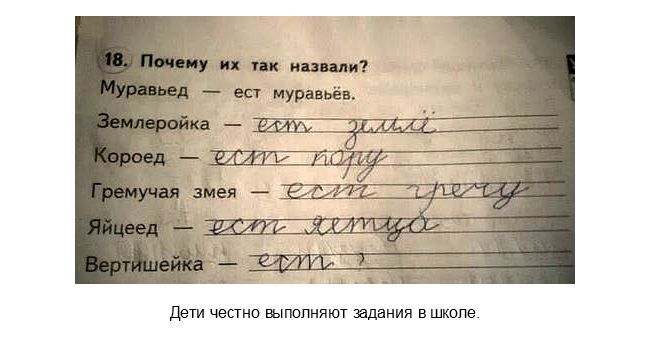 18. Почему их так назвали?
Муравьед — ест муравьёв.
Землеройка — ест землё
Короед — ест кору
Гремучая змея — ест гречу
Яйцеед — ест яетца
Вертишейка — ест ?
Дети честно выполняют задания в школе.